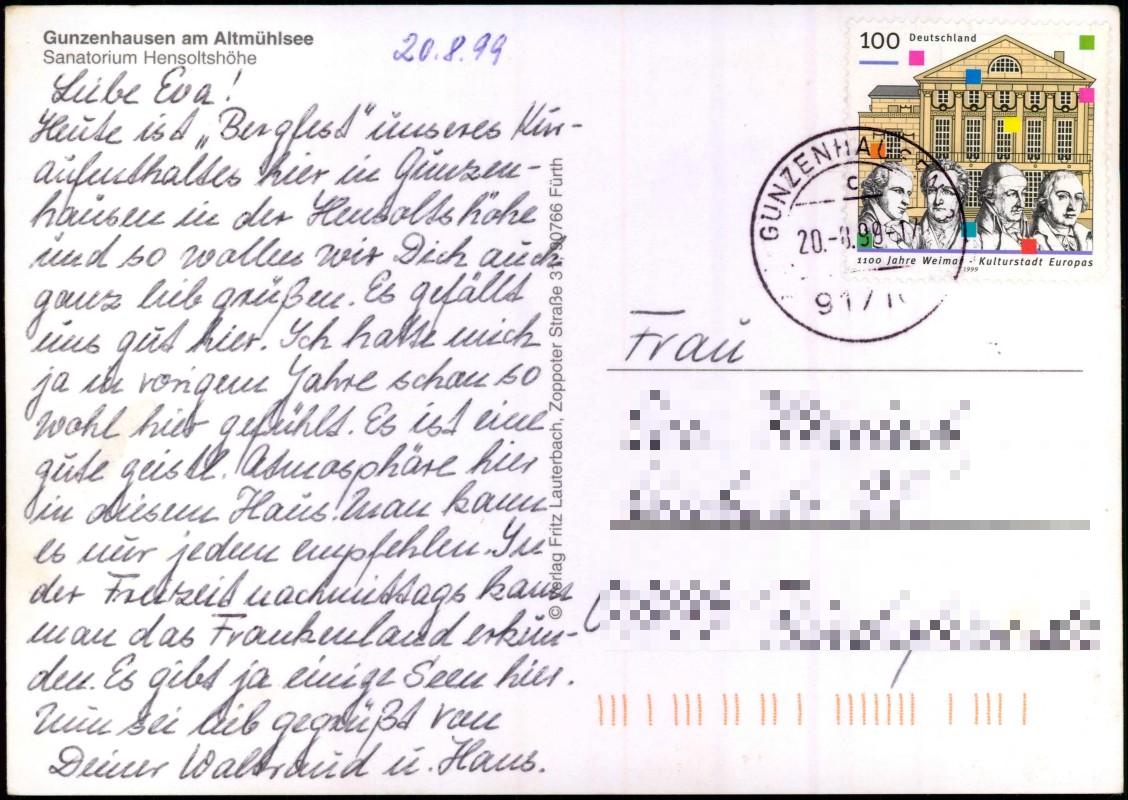 Gunzenhausen am Altmühlsee
Sanatorium Hensoltshöhe
20.8.99
Liebe Eva!
Heute ist „Bergfest" unseres Kur-
aufenthaltes hier in Gunzen-
hausen in der Hensoltshöhe
und so wollen wir Dich auch
ganz lieb grüßen. Es gefällt
uns gut hier. Ich hatte mich
ja im vorigem Jahre schon so
wohl hier gefühlt. Es ist eine
gute geistl. Atmosphäre hier
in diesem Haus! Man kann
es nur jedem empfehlen. In
der Freizeit nachmittags kann
man das Frankenland erkun-
den. Es gibt ja einige Seen hier.
Nun sei lieb gegrüßt von
Deiner Waltraud u. Hans.
© Verlag Fritz Lauterbach, Zoppoter Straße 90766 Fürth
100 Deutschland
1100 Jahre Weimar - Kulturstadt Europas
1999
GUNZENHAUSEN
c
20.-8.99-17
9171
Frau